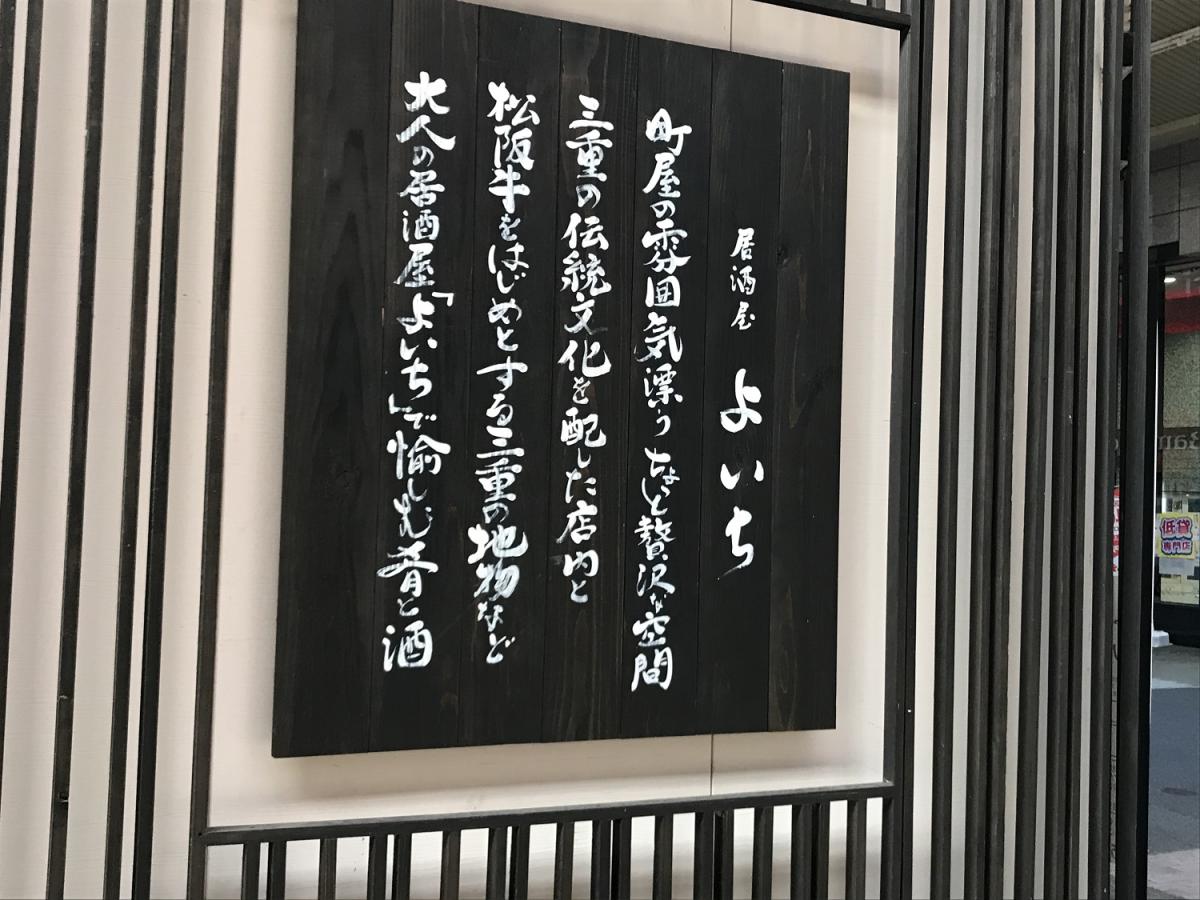 居酒屋 よいち
町屋の雰囲気漂う ちょっと贅沢な空間
三重の伝統文化を配した店内と
松阪牛をはじめとする三重の地物など
大人の居酒屋「よいち」で愉しむ肴と酒
低貸
専門店